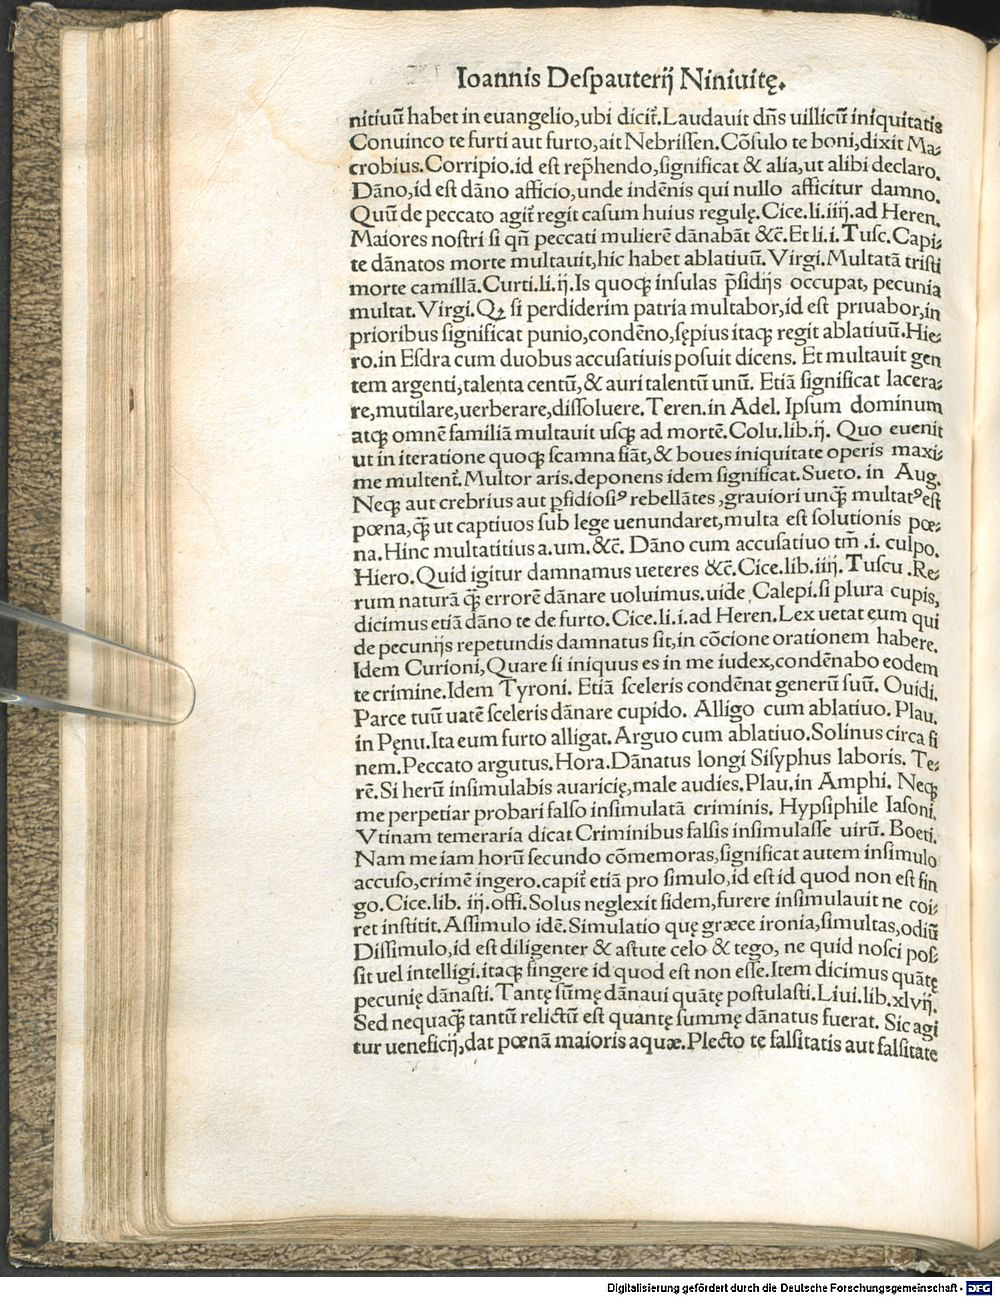 Ioannis Deſpauterij Niniuitę.
nitiuū habet in euangelio,ubi dicit̃.Laudauit dñs uillicū iniquitatis
Conuinco te furti aut furto,ait Nebriſſen.Cōſulo te boni,dixit Ma⸗
crobius.Corripio.id eſt rep̃hendo,ſignificat & alia,ut alibi declaro.
Dāno,id eſt dāno afficio,unde indēnis qui nullo afficitur damno.
Quū de peccato agit̃ regit caſum huius regulę.Cice.li.iiij.ad Heren.
Maiores noſtri ſi qñ peccati mulierē dānabāt &c̄.Et li.i.Tuſc.Capi⸗
te dānatos morte multauit,hic habet ablatiuū.Virgi.Multatā triſti
morte camillā.Curti.li.ij.Is quoqꝫ inſulas p̃ſidijs occupat, pecunia
multat.Virgi.Qꝫ ſi perdiderim patria multabor,id eſt priuabor,in
prioribus ſignificat punio,condēno,ſępius itaqꝫ regit ablatiuū.Hie⸗
ro.in Eſdra cum duobus accuſatiuis poſuit dicens. Et multauit gen
tem argenti,talenta centū,& auri talentū unū. Etiā ſignificat lacera⸗
re,mutilare,uerberare,diſſoluere.Teren.in Adel. Ipſum dominum
atqꝫ omnē familiā multauit uſqꝫ ad mortē.Colu.lib.ij. Quo euenit
ut in iteratione quoqꝫ ſcamna fiāt,& boues iniquitate operis maxi⸗
me multent̃.Multor aris.deponens idem ſignificat.Sueto. in Aug.
Neqꝫ aut crebrius aut ꝑfidioſiꝰ rebellātes,grauiori unqꝫ̄ multatꝰ eſt
pœna,qꝫ̄ ut captiuos ſub lege uenundaret,multa eſt ſolutionis pœ⸗
na.Hinc multatitius a.um.&c̄. Dāno cum accuſatiuo tm̄ .i. culpo.
Hiero.Quid igitur damnamus ueteres &c̄.Cice.lib.iiij.Tuſcu.Re⸗
rum naturā qꝫ̄ errorē dānare uoluimus.uide Calepi.ſi plura cupis,
dicimus etiā dāno te de furto.Cice.li.i.ad Heren.Lex uetat eum qui
de pecunijs repetundis damnatus ſit,in cōcione orationem habere.
Idem Curioni,Quare ſi iniquus es in me iudex,condēnabo eodem
te crimine.Idem Tyroni. Etiā ſceleris condēnat generū ſuū. Ouidi.
Parce tuū uatē ſceleris dānare cupido. Alligo cum ablatiuo. Plau.
in Pęnu.Ita eum furto alligat.Arguo cum ablatiuo.Solinus circa fi
nem.Peccato argutus.Hora.Dānatus longi Siſyphus laboris. Te⸗
rē.Si herū inſimulabis auaricię,male audies.Plau.in Amphi. Neqꝫ
me perpetiar probari falſo inſimulatā criminis. Hypſiphile Iaſoni.
Vtinam temeraria dicat Criminibus falſis inſimulaſſe uirū. Boeti.
Nam me iam horū ſecundo cōmemoras,ſignificat autem inſimulo
accuſo,crimē ingero.capit̃ etiā pro ſimulo,id eſt id quod non eſt fin
go.Cice.lib. iij.offi.Solus neglexit fidem,furere inſimulauit ne coi⸗
ret inſtitit.Aſſimulo idē.Simulatio quę græce ironia,ſimultas,odiū
Diſſimulo,id eſt diligenter & aſtute celo & tego, ne quid noſci poſ⸗
ſit uel intelligi.itaqꝫ fingere id quod eſt non eſſe.Item dicimus quātę
pecunię dānaſti.Tantę ſūmę dānaui quātę poſtulaſti.Liui.lib.xlvij.
Sed nequaqꝫ̄ tantū relictū eſt quantę ſummę dānatus fuerat. Sic agi
tur ueneficij,dat pœnā maioris aquæ.Plecto te falſitatis aut falſitate
Digitalisierung gefördert durch die Deutsche Forschungsgemeinschaft - DFG